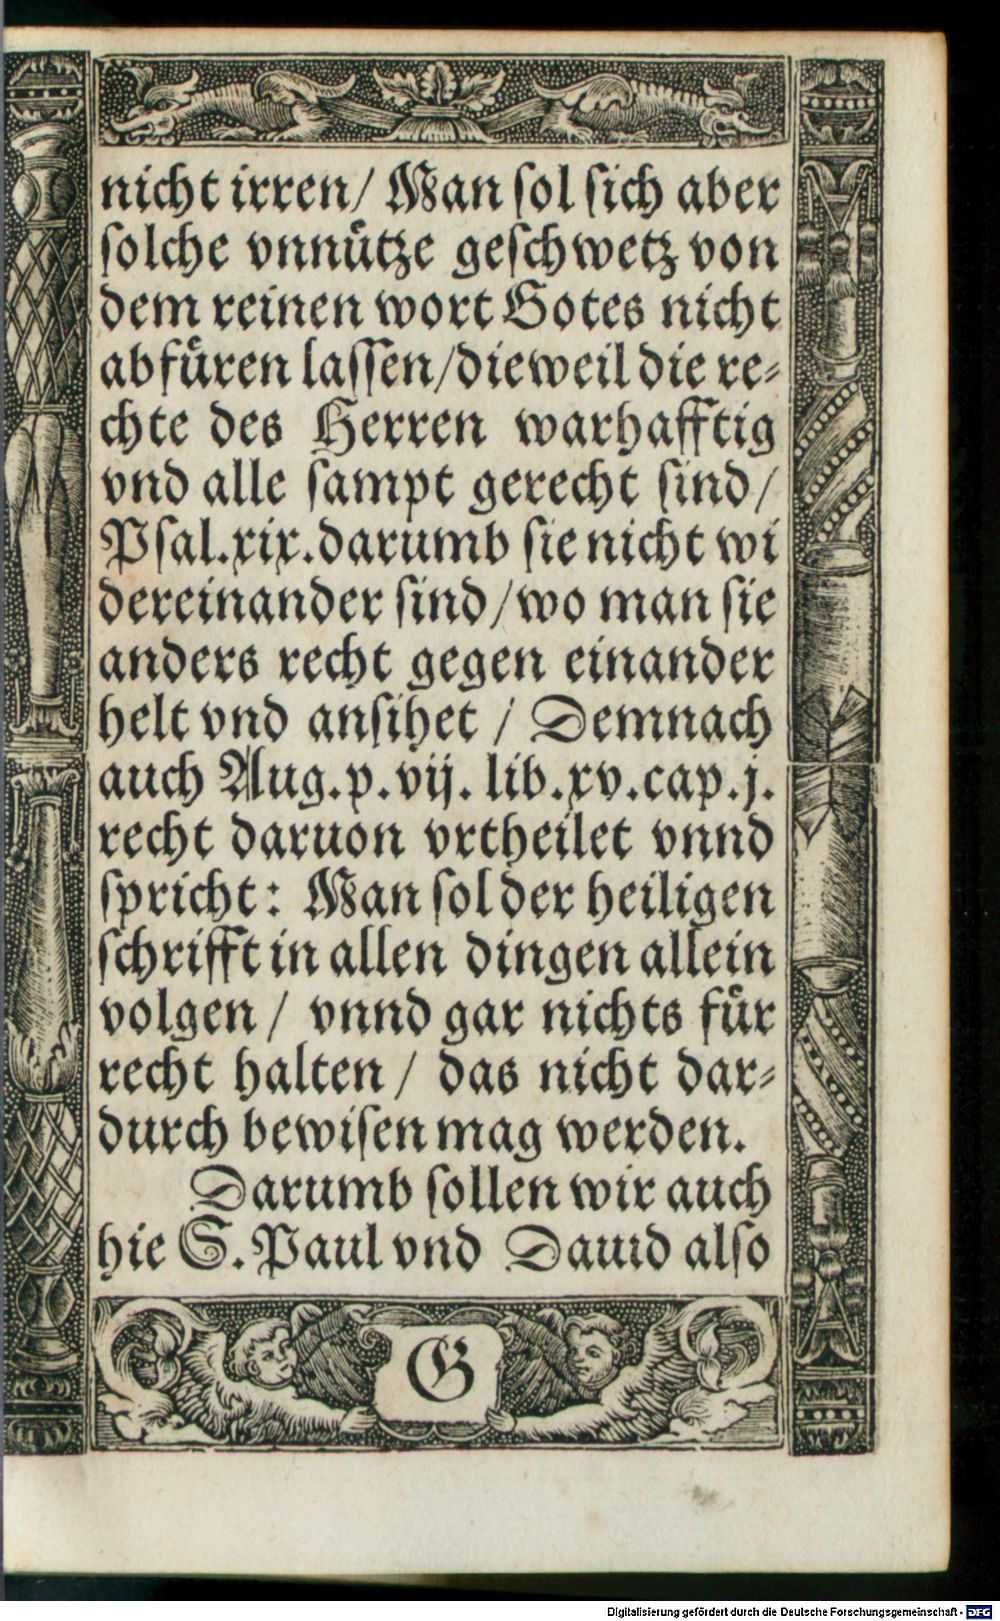 nicht irren/ Man sol sich aber
solche vnnütze geschwetz von
dem reinen wort Gotes nicht
abfüren lassen/dieweil die re⸗
chte des Herren warhafftig
vnd alle sampt gerecht sind/
Psal.xix.darumb sie nicht wi
dereinander sind/wo man sie
anders recht gegen einander
helt vnd ansihet / Demnach
auch Aug.p.vij. lib.xv.cap.j.
recht daruon vrtheilet vnnd
spricht: Man sol der heiligen
schrifft in allen dingen allein
volgen / vnnd gar nichts für
recht halten / das nicht dar⸗
durch bewisen mag werden.
Darumb sollen wir auch
hie S. Paul vnd Dauid also
G
Digitalisierung gefördert durch die Deutsche Forschungsgemeinschaft - DFG